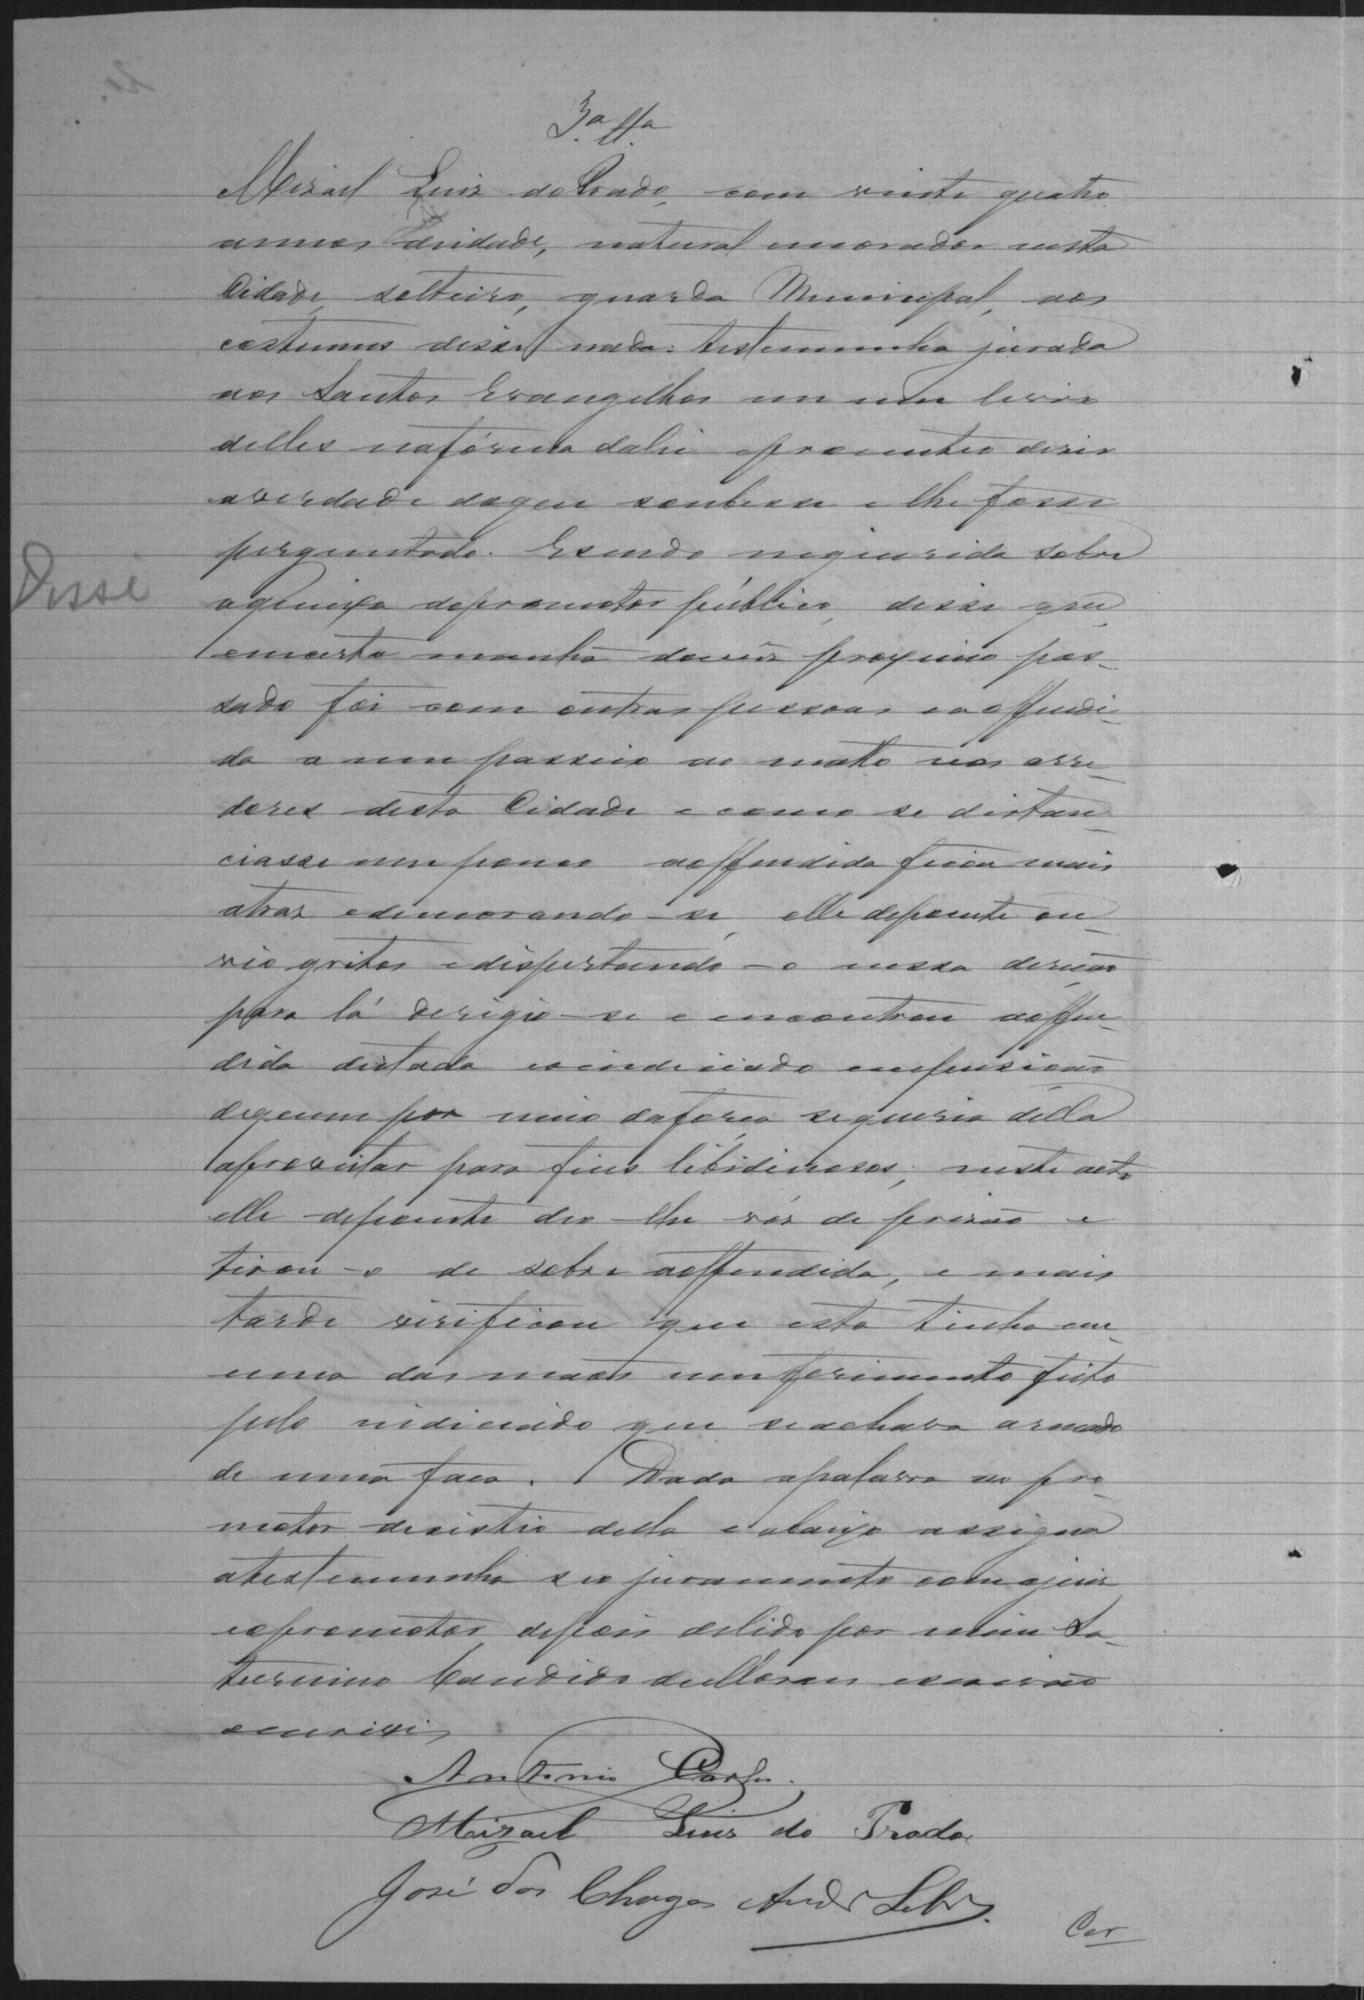 3ª Ttª
Mizael Luiz do Prado, com vinte quatro
annos deidade, natural emorador nesta
Cidade, solteiro, guarda Municipal, aos
costumes disse nada. testemunha jurada
aos Santos Evangelhos em um livro
delles nafórma dalei eprometteo diser
averdade doque soubesse e lhe fosse
perguntado. Esendo inquirida sobre
aqueixa dopromotor público, disse que
emcerta manhã domês proximo pas-
sado foi com outras pessoas eaoffendi-
da a um passeio ao matto nos arre-
dores desta Cidade e como se distan-
ciasse um pouco aoffendida ficou mais
atras edemorando-se, elle depoente ou-
vio gritos edispertando-o nessa direcção
para lá derigio-se e encontrou aoffen-
dida deitada eoindiciado emposição
dequem por meio daforça sequeria della
aproveitar para fins libidinosos; neste acto
elle depoente deo-lhe vós de prisão e
tirou-o de sobre aoffendida, e mais
tarde verificou que esta tinha em
uma das mãos umferimento feito
pelo indiciado que seachava armado
de uma faca. Dada apalavra ao pro-
motor desistio della e abaixo assigna
atestemunha seo juramento comojuiz
eopromotor depois delido por mim Sa-
turnino Candido deMoraes escrivão
oescrevi
Antonio
Mizael Luiz do Prado
José das Chagas Andr
Cer
Disse